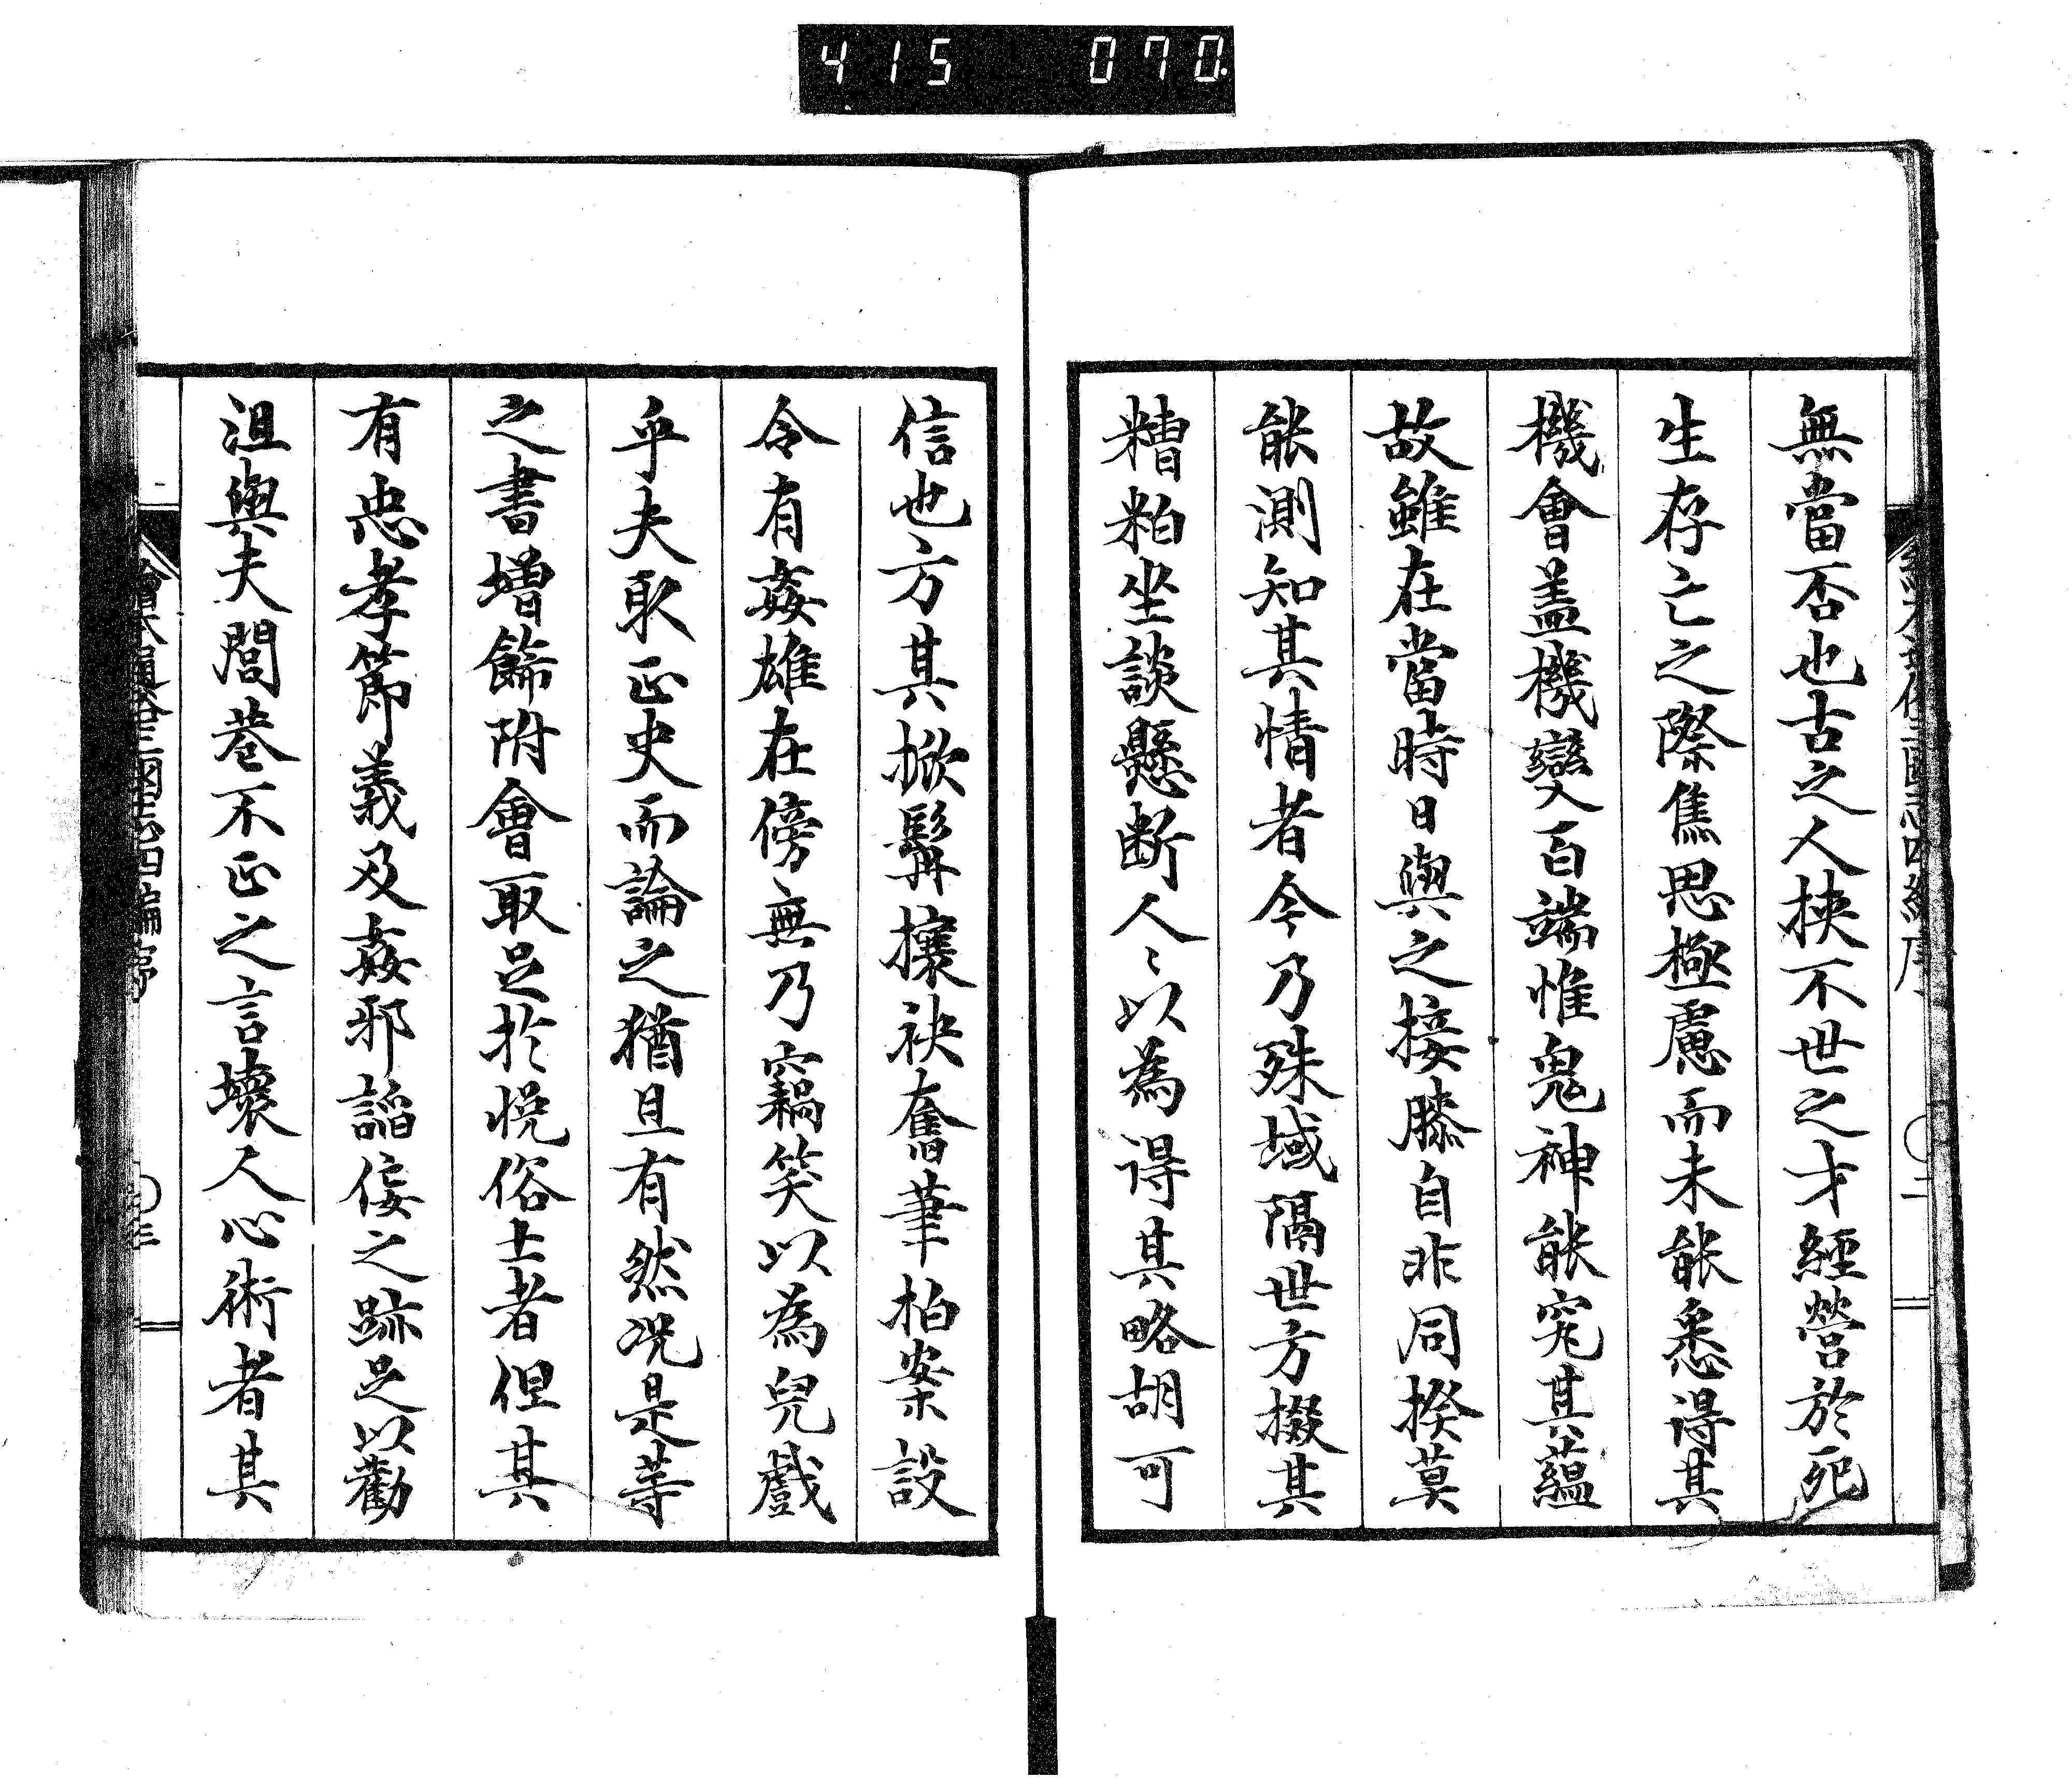 415 070
無當否也古之人挾不世之才經營於死
生存亡之際焦思極慮而未能悉得其
機會盖機變百端惟鬼神能究其蘊
故雖在當時日與之接膝自非同揆莫
能測知其情者今乃殊域隔世方掇其
糟粕坐談懸断人〻以為得其略胡可
信也方其掀髯攘袂奮筆拍案設
令有姦雄在傍無乃竊笑以為兒戲
乎夫取正史而論之猶且有然况是等
之書增餙附會取足於悦俗士者但其
有忠孝節義及姦邪諂佞之跡足以勸
沮與夫閭巷不正之言壞人心術者其